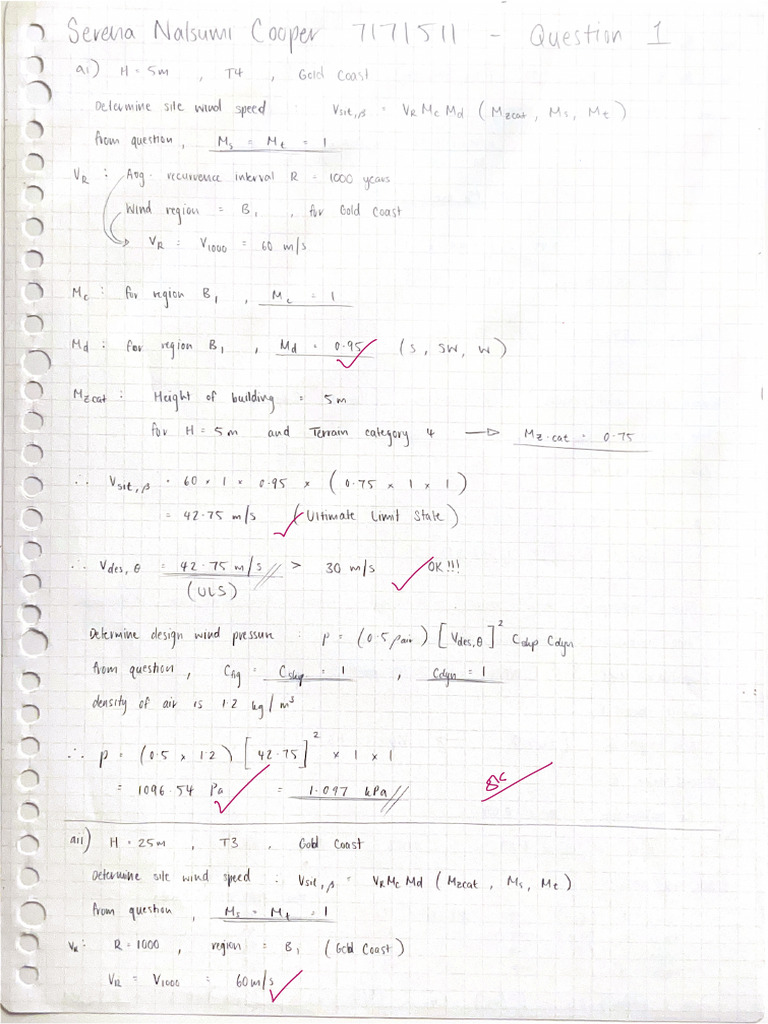 Serena Nalsumi Cooper 7171511 - Question 1
ai) H = 5m , T4 , Gold Coast
Determine site wind speed : Vsit,β = VR Mc Md (Mzcat, Ms, Mt)
from question, Ms = Mt = 1
VR : Avg. recurrence interval R = 1000 years
Wind region = B1 , for Gold Coast
VR = V1000 = 60 m/s
Mc : for region B1 , Mc = 1
Md : for region B1 , Md = 0.95 (S, SW, W)
Mzcat : Height of building = 5m
for H = 5m and Terrain category 4 → Mz.cat = 0.75
∴ Vsit,β = 60 × 1 × 0.95 × (0.75 × 1 × 1)
= 42.75 m/s (Ultimate Limit State)
∴ Vdes,θ = 42.75 m/s > 30 m/s OK!!!
(ULS)
Determine design wind pressure : p = (0.5 ρair) [Vdes,θ]² Cshp Cdyn
from question, Cfig = Cshp = 1 , Cdyn = 1
density of air is 1.2 kg/m³
∴ p = (0.5 × 1.2) [42.75]² × 1 × 1
= 1096.54 Pa = 1.097 kPa
aii) H = 25m , T3 , Gold Coast
Determine site wind speed : Vsit,β = VR Mc Md (Mzcat, Ms, Mt)
from question, Ms = Mt = 1
VR: R = 1000 , region = B1 (Gold Coast)
VR = V1000 = 60m/s